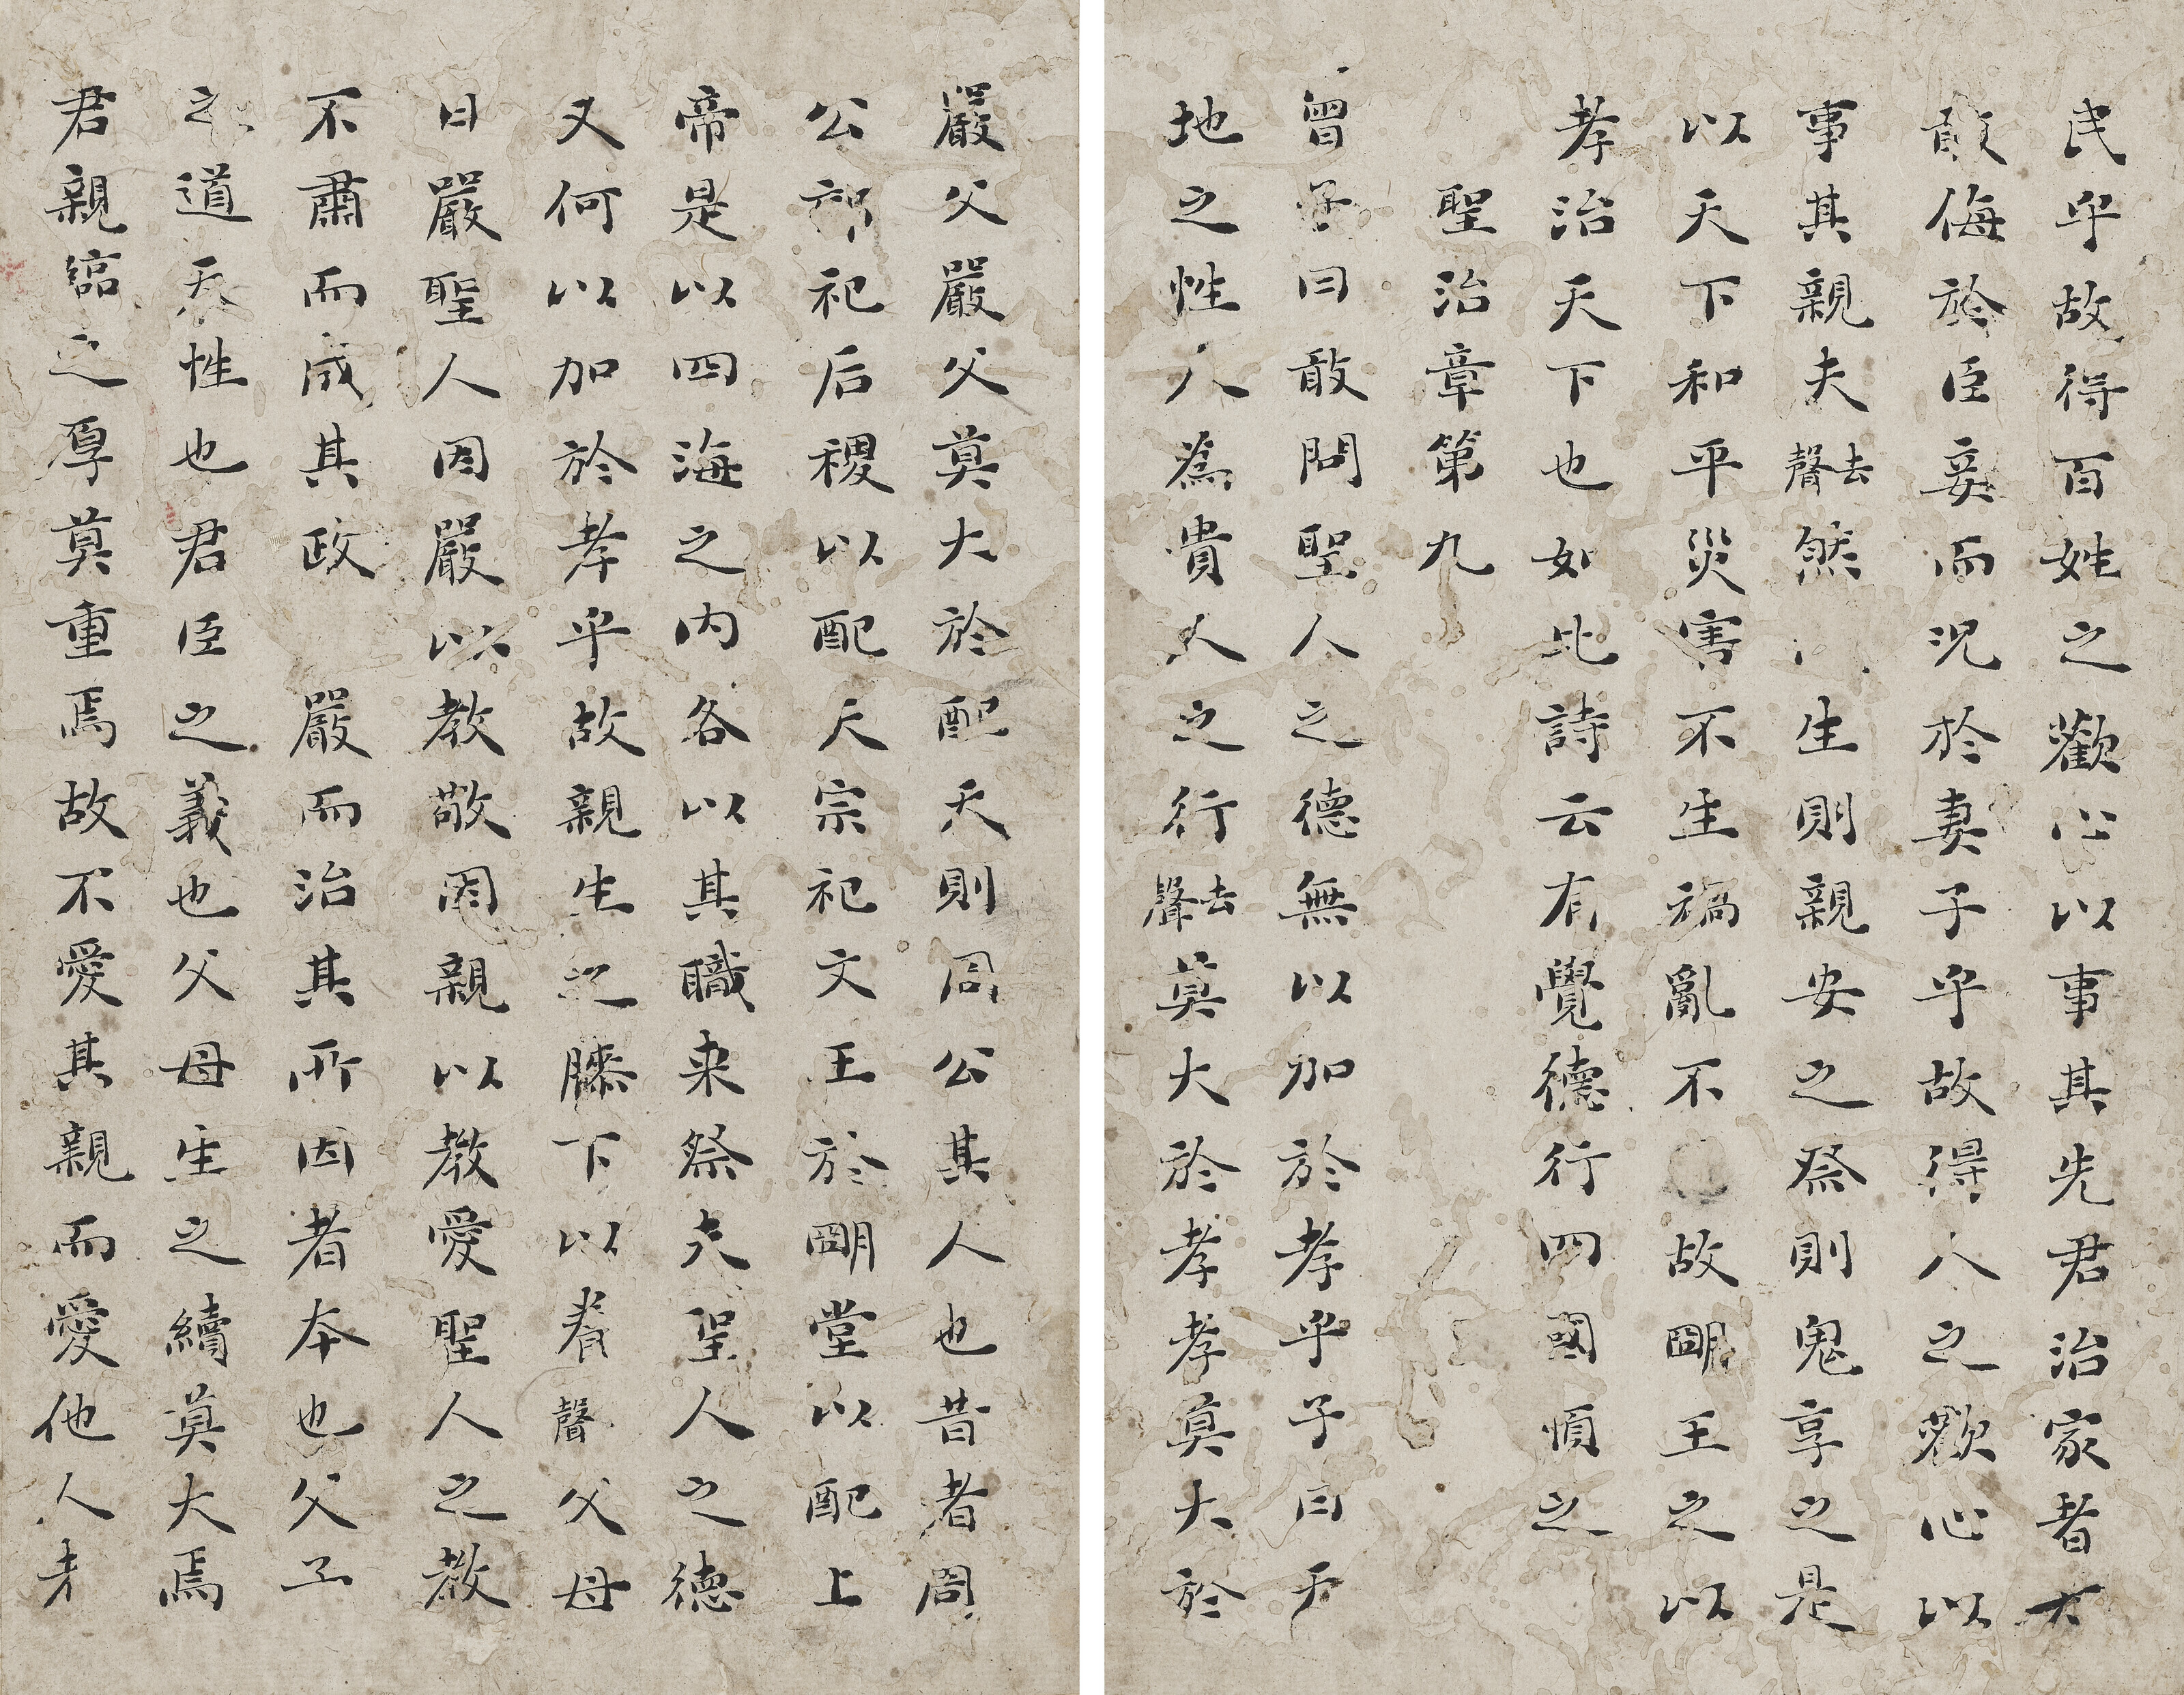 民乎故得百姓之歡心以事其先君治家者不
敢侮於臣妾而况於妻子乎故得人之歡心以
事其親夫去聲然生則親安之祭則鬼享之是
以天下和平災害不生禍亂不故朙王之以
孝治天下也如此詩云有覺德行四國順之
聖治章第九
曾子曰敢問聖人之德無以加於孝乎子曰天
地之性人為貴人之行去聲莫大於孝孝莫大於
嚴父嚴父莫大於配天則周公其人也昔者周
公郊祀后稷以配天宗祀文王於朙堂以配上
帝是以四海之内各以其職来祭夫聖人之德
又何以加於孝乎故親生之膝下以養聲父母
日嚴聖人因嚴以教敬因親以教愛聖人之教
不肅而成其政嚴而治其所因者本也父子
之道天性也君臣之義也父母生之續莫大焉
君親臨之厚莫重焉故不愛其親而愛他人者